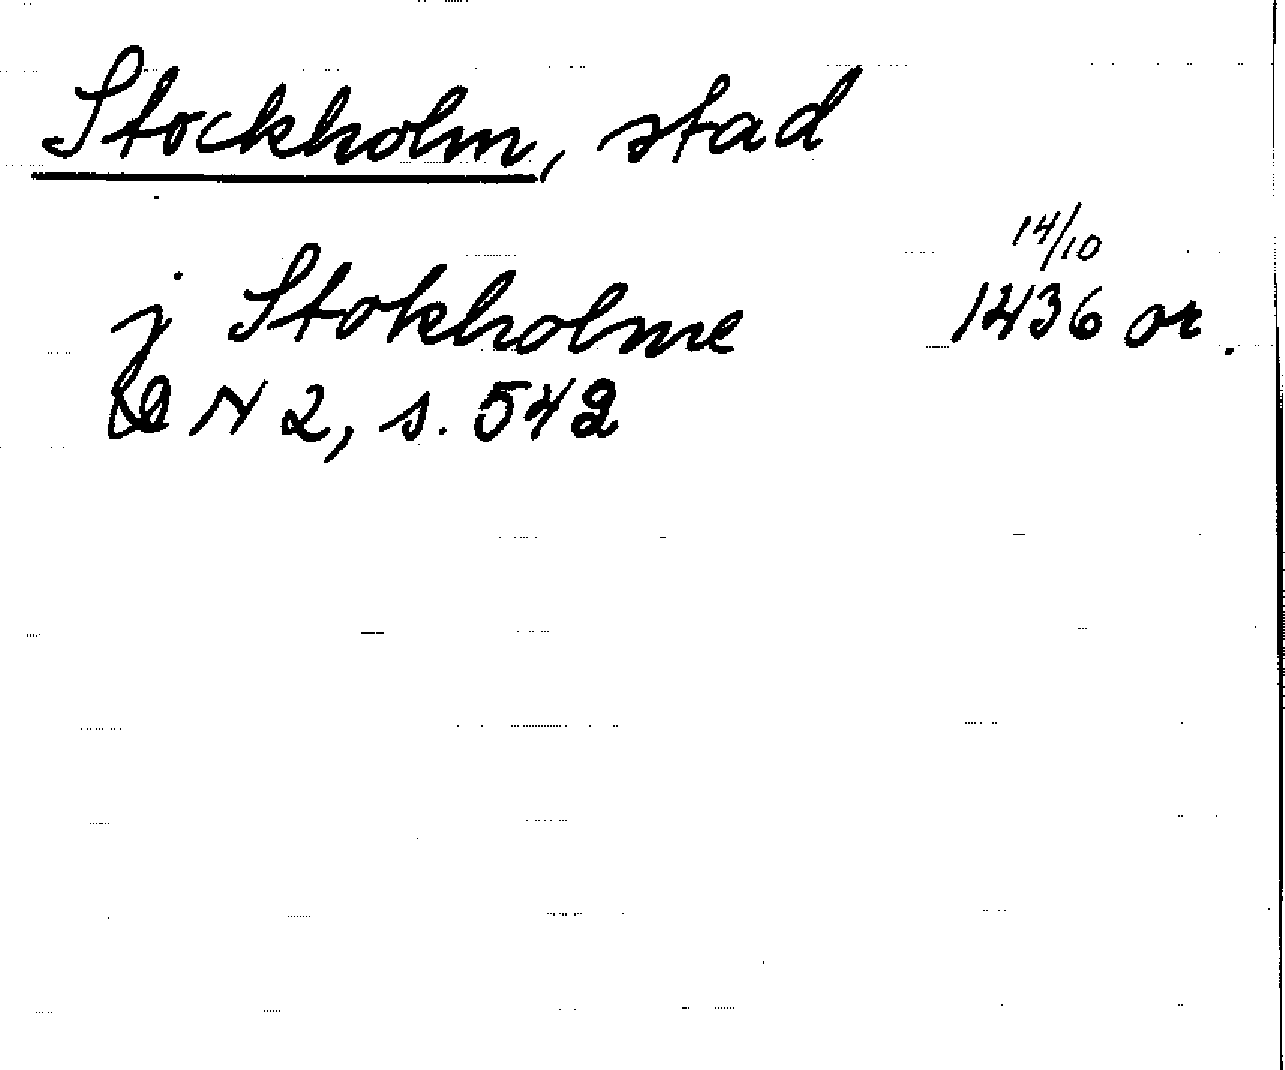 Stockholm, stad
j Stokholme 14/10 1436 or.
N 2, s. 542